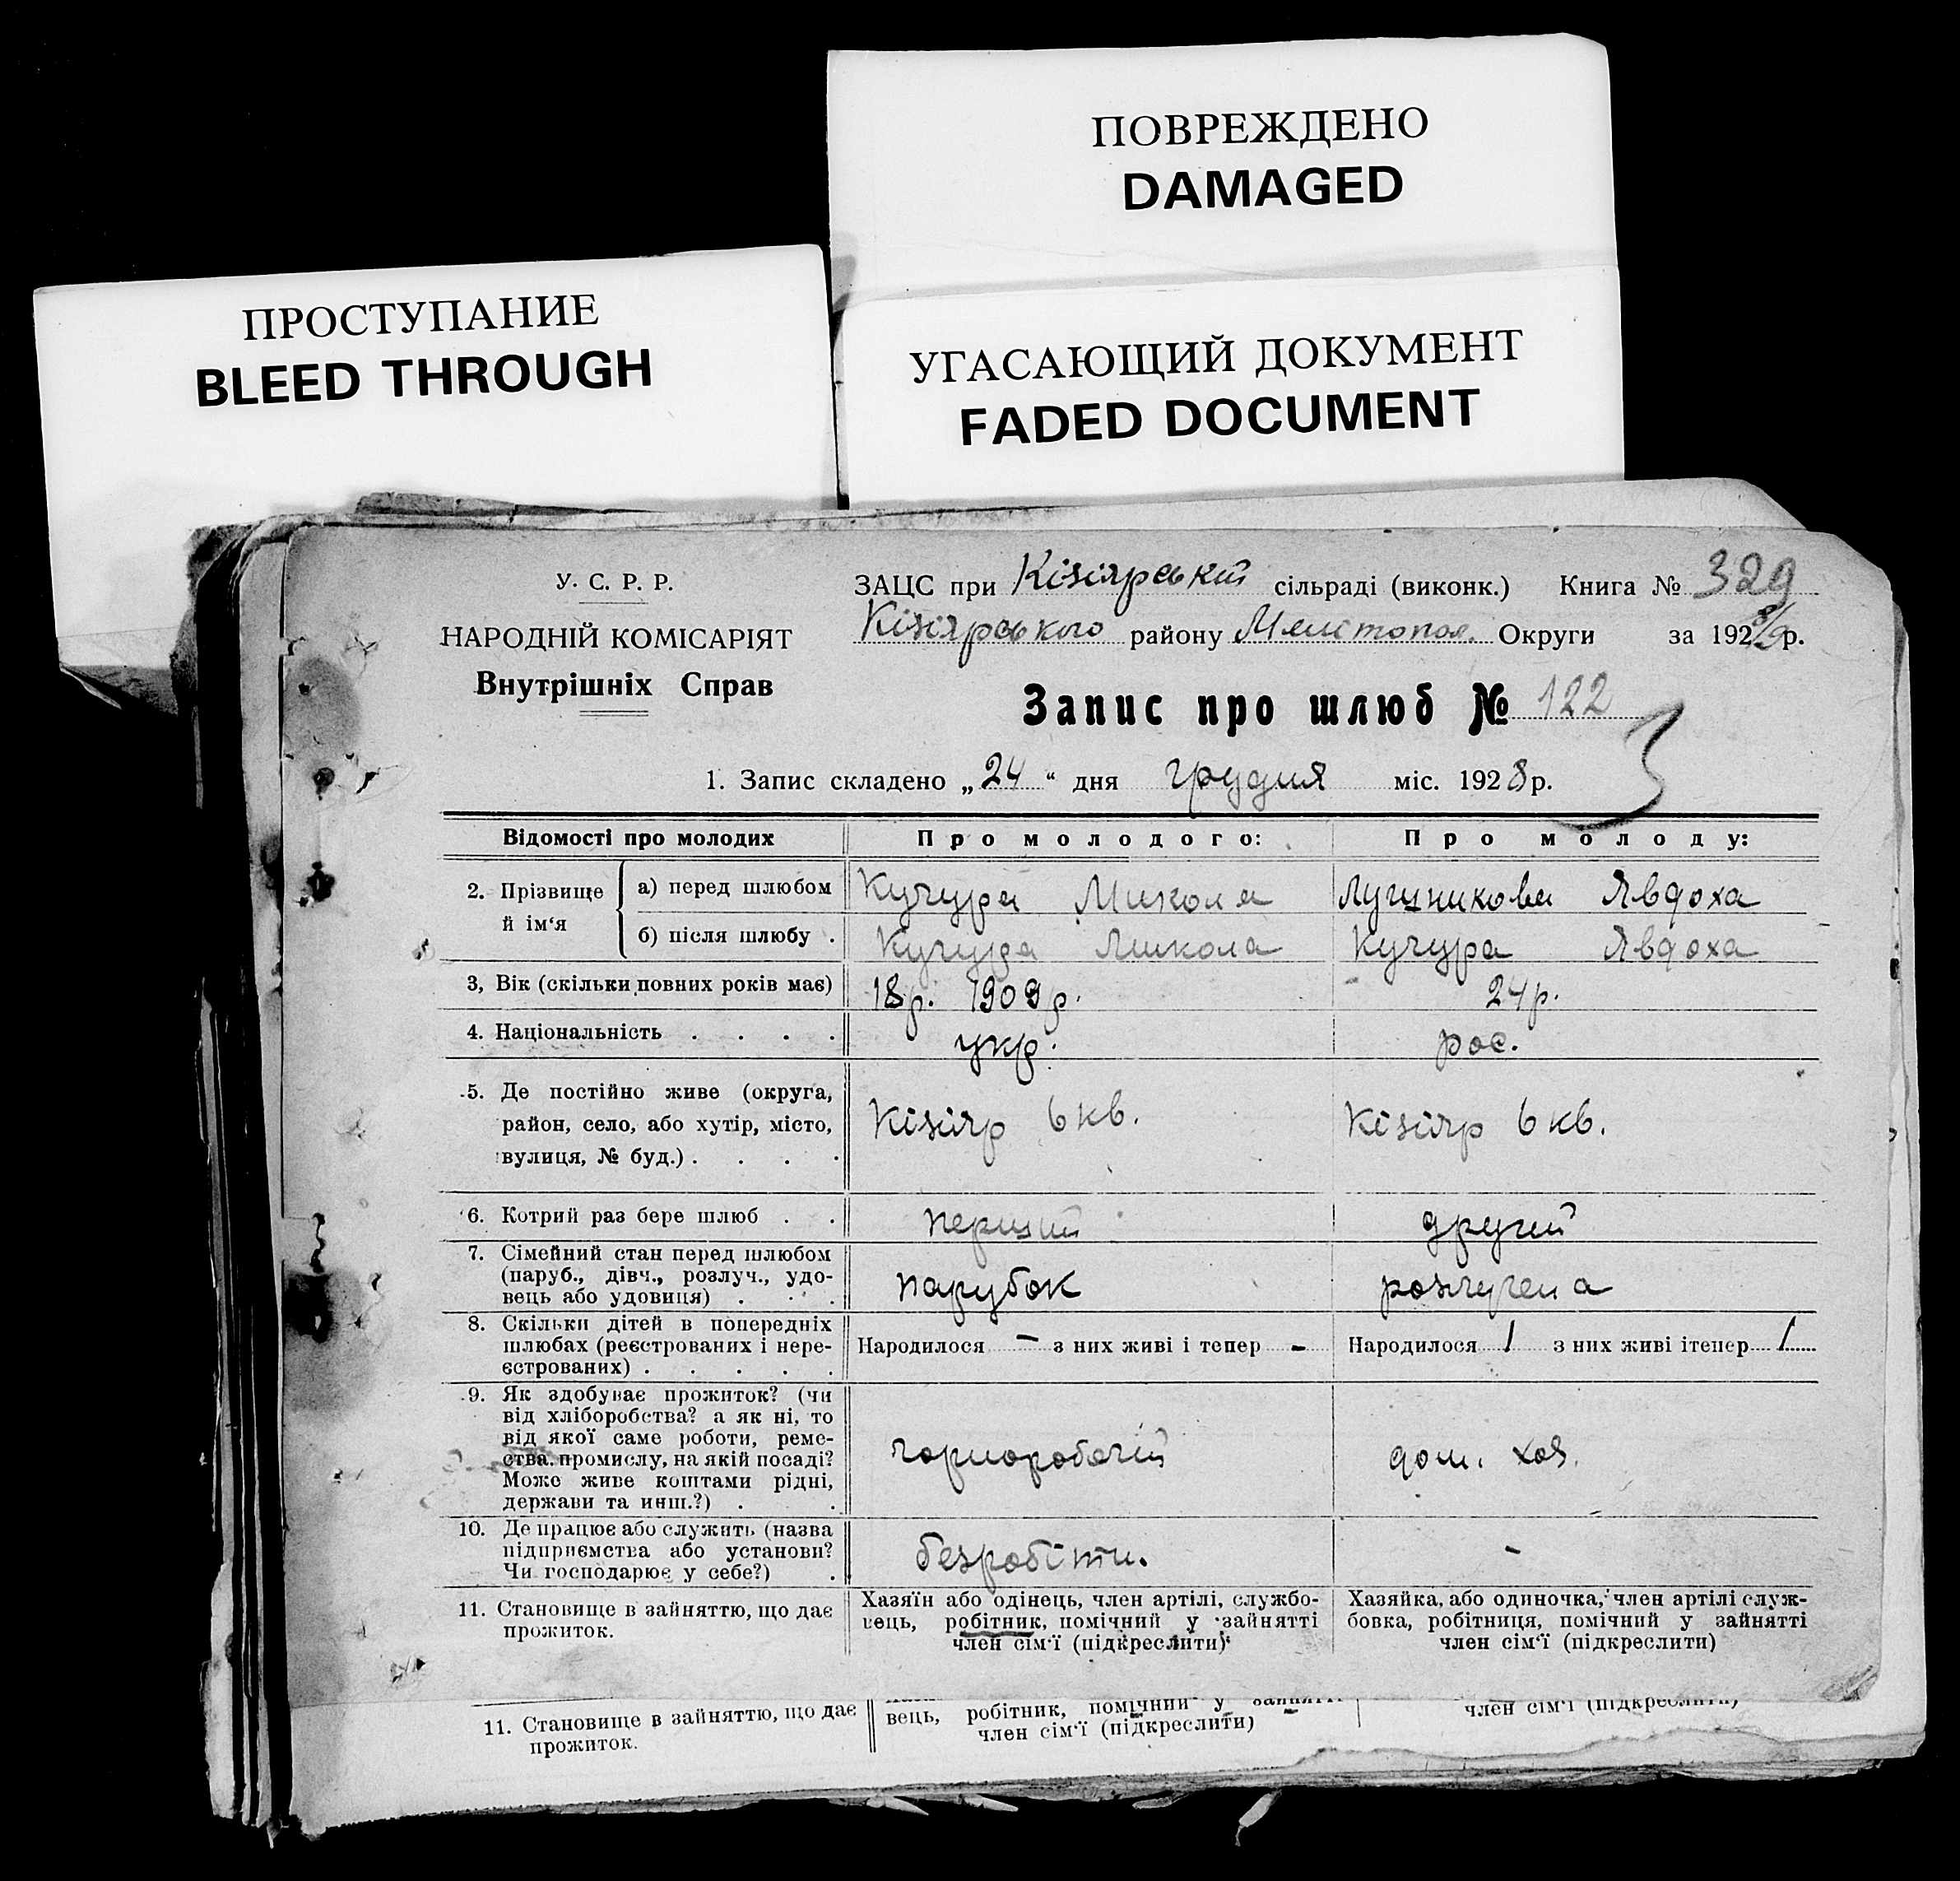 ПОВРЕЖДЕНО
DAMAGED
ПРОСТУПАНИЕ
BLEED THROUGH
УГАСАЮЩИЙ ДОКУМЕНТ
FADED DOCUMENT
У. С. Р. Р.
НАРОДНІЙ КОМІСАРІЯТ
Внутрішніх Справ
ЗАЦС при Кізіярській сільраді (виконк.) Книга № 329
Кізіярського району Мелітопол. Округи за 1928/9р.
Запис про шлюб № 122
1. Запис складено „24“ дня грудня міс. 1928р.
Відомості про молодих
Про молодого:
Про молоду:
2. Прізвище й ім‘я
а) перед шлюбом
Кучура Микола
Лущикова Явдоха
б) після шлюбу .
Кучура Микола
Кучура Явдоха
3, Вік (скільки повних років має)
18р. 1909р.
24р.
4. Національність . . . .
укр.
рос.
5. Де постійно живе (округа,
район, село, або хутір, місто,
вулиця, № буд.) . . . .
Кізіяр 6 кв.
Кізіяр 6 кв.
6. Котрий раз бере шлюб . .
перший
другий
7. Сімейний стан перед шлюбом
(паруб., дівч., розлуч., удо-
вець або удовиця) . . .
парубок
розлучена
8. Скільки дітей в попередніх
шлюбах (реєстрованих і нере-
єстрованих) . . . . .
Народилося – з них живі і тепер -
Народилося 1 з них живі ітепер 1
9. Як здобуває прожиток? (чи
від хліборобства? а як ні, то
від якої саме роботи, реме-
ства, промислу, на якій посаді?
Може живе коштами рідні,
держави та инш.?) . .
чорноробочій
дом. хоз.
10. Де працює або служить (назва
підприємства або установи?
Чи господарює у себе?) .
безробітн.
-
11. Становище в зайняттю, що дає
прожиток.
Хазяїн або одінець, член артілі, службо-
вець, робітник, помічний у зайнятті
член сім‘ї (підкреслити)
Хазяйка, або одиночка, член артілі служ-
бовка, робітниця, помічний у зайнятті
член сім‘ї (підкреслити)
11. Становище в зайняттю, що дає
прожиток.
вець, робітник, помічний у зайнятті
член сім‘ї (підкреслити)
член сім‘ї (підкреслити)